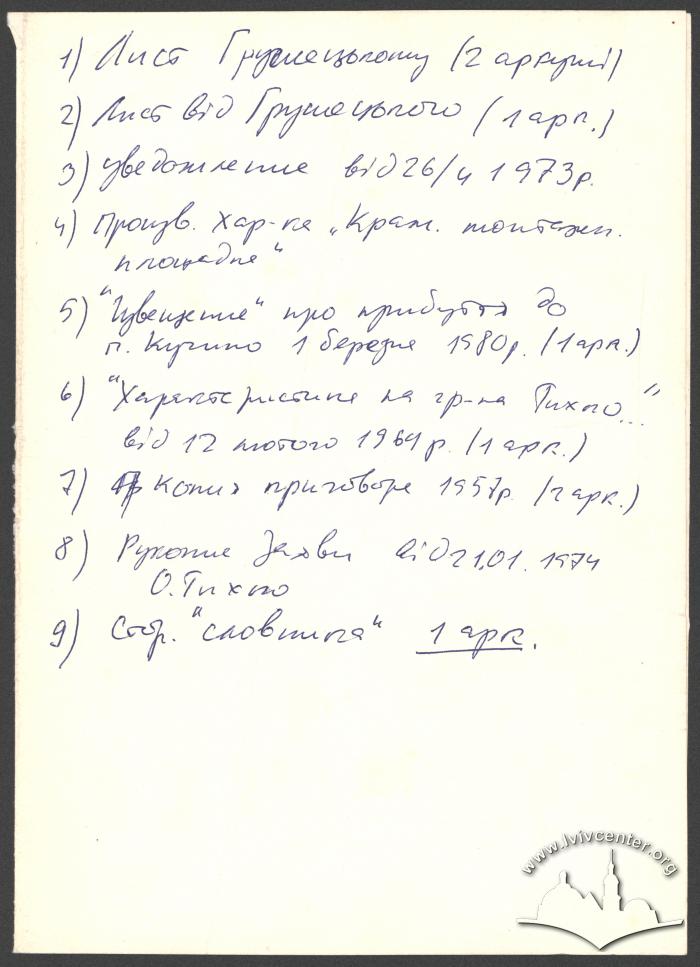 1) Лист Грушецькому (2 аркуші)
2) Лист від Грушецького (1 арк.)
3) Уведомление від 26/4 1973р.
4) Произв. хар-ка „Крам. монтажн.
площадка“
5) "Извещение" про прибуття до
п. Кучино 1 березня 1980р. (1 арк.)
6) "Характеристика на гр-на Тихого..."
від 12 лютого 1964р. (1 арк.)
7) Копия приговора 1957р. (2 арк.)
8) Рукопис Заяви від 21.01.1974
О. Тихого
9) Стор. "словника" 1 арк.
www.lvivcenter.org